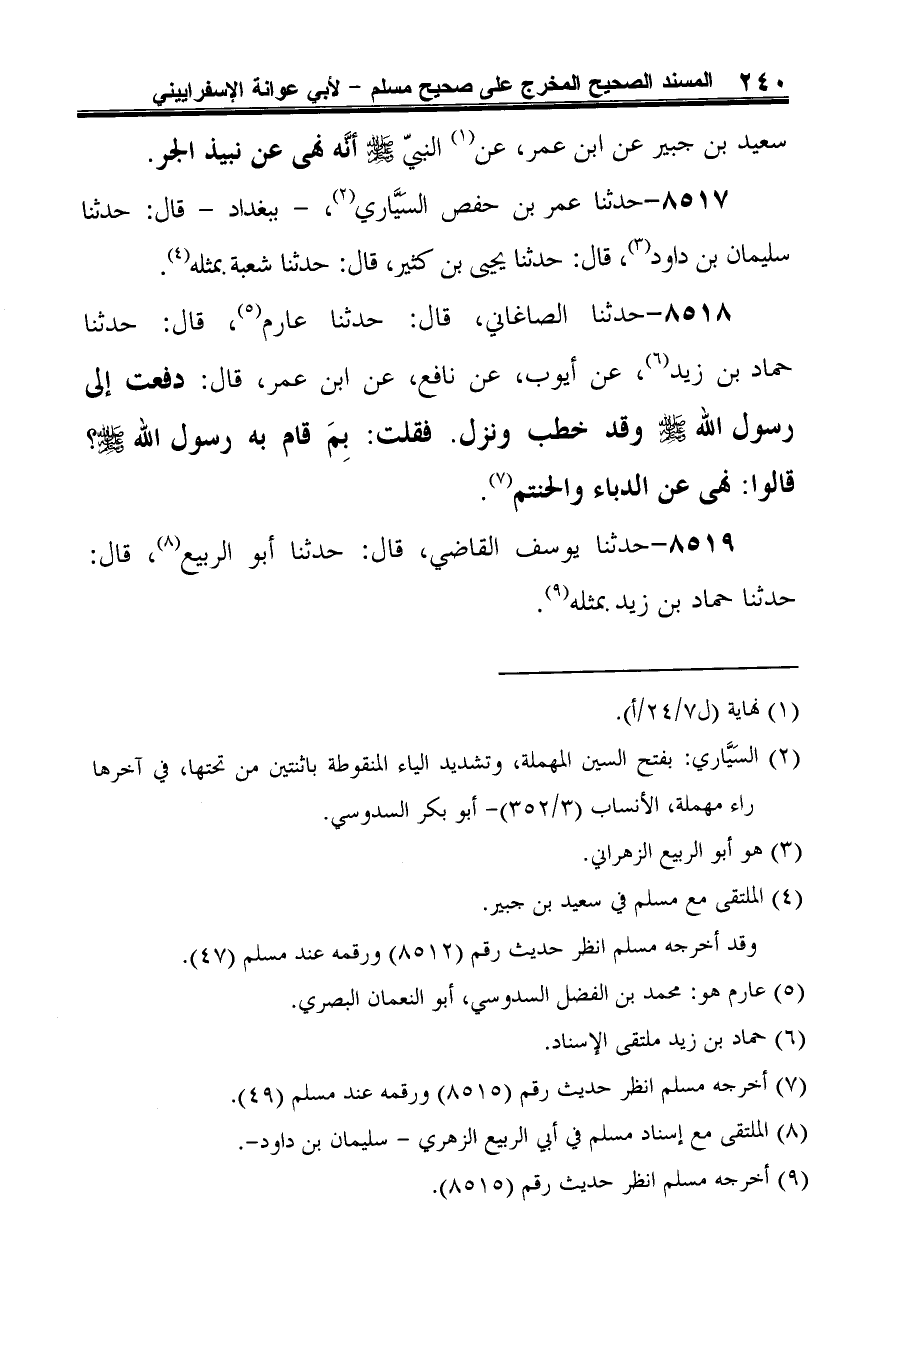 ٢٤٠ المسند الصحيح المخرج على صحيح مسلم - لأبي عوانة الإسفراييني
سعيد بن جبير عن ابن عمر، عن(١) النبيّ ﷺ أنَّه نهى عن نبيذ الجر.
٨٥١٧-حدثنا عمر بن حفص السيَّاري(٢)، - ببغداد - قال: حدثنا
سليمان بن داود(٣)، قال: حدثنا يحيى بن كثير، قال: حدثنا شعبة بمثله(٤).
٨٥١٨-حدثنا الصاغاني، قال: حدثنا عارم(٥)، قال: حدثنا
حماد بن زيد(٦)، عن أيوب، عن نافع، عن ابن عمر، قال: دفعت إلى
رسول الله ﷺ وقد خطب ونزل. فقلت: بِمَ قام به رسول الله ﷺ؟
قالوا: نهى عن الدباء والحنتم(٧).
٨٥١٩-حدثنا يوسف القاضي، قال: حدثنا أبو الربيع(٨)، قال:
حدثنا حماد بن زيد بمثله(٩).
(١) نهاية (ل٧/٢٤/أ).
(٢) السيَّاري: بفتح السين المهملة، وتشديد الياء المنقوطة باثنتين من تحتها، في آخرها
راء مهملة، الأنساب (٣/٣٥٢)- أبو بكر السدوسي.
(٣) هو أبو الربيع الزهراني.
(٤) الملتقى مع مسلم في سعيد بن جبير.
وقد أخرجه مسلم انظر حديث رقم (٨٥١٢) ورقمه عند مسلم (٤٧).
(٥) عارم هو: محمد بن الفضل السدوسي، أبو النعمان البصري.
(٦) حماد بن زيد ملتقى الإسناد.
(٧) أخرجه مسلم انظر حديث رقم (٨٥١٥) ورقمه عند مسلم (٤٩).
(٨) الملتقى مع إسناد مسلم في أبي الربيع الزهري - سليمان بن داود-.
(٩) أخرجه مسلم انظر حديث رقم (٨٥١٥).